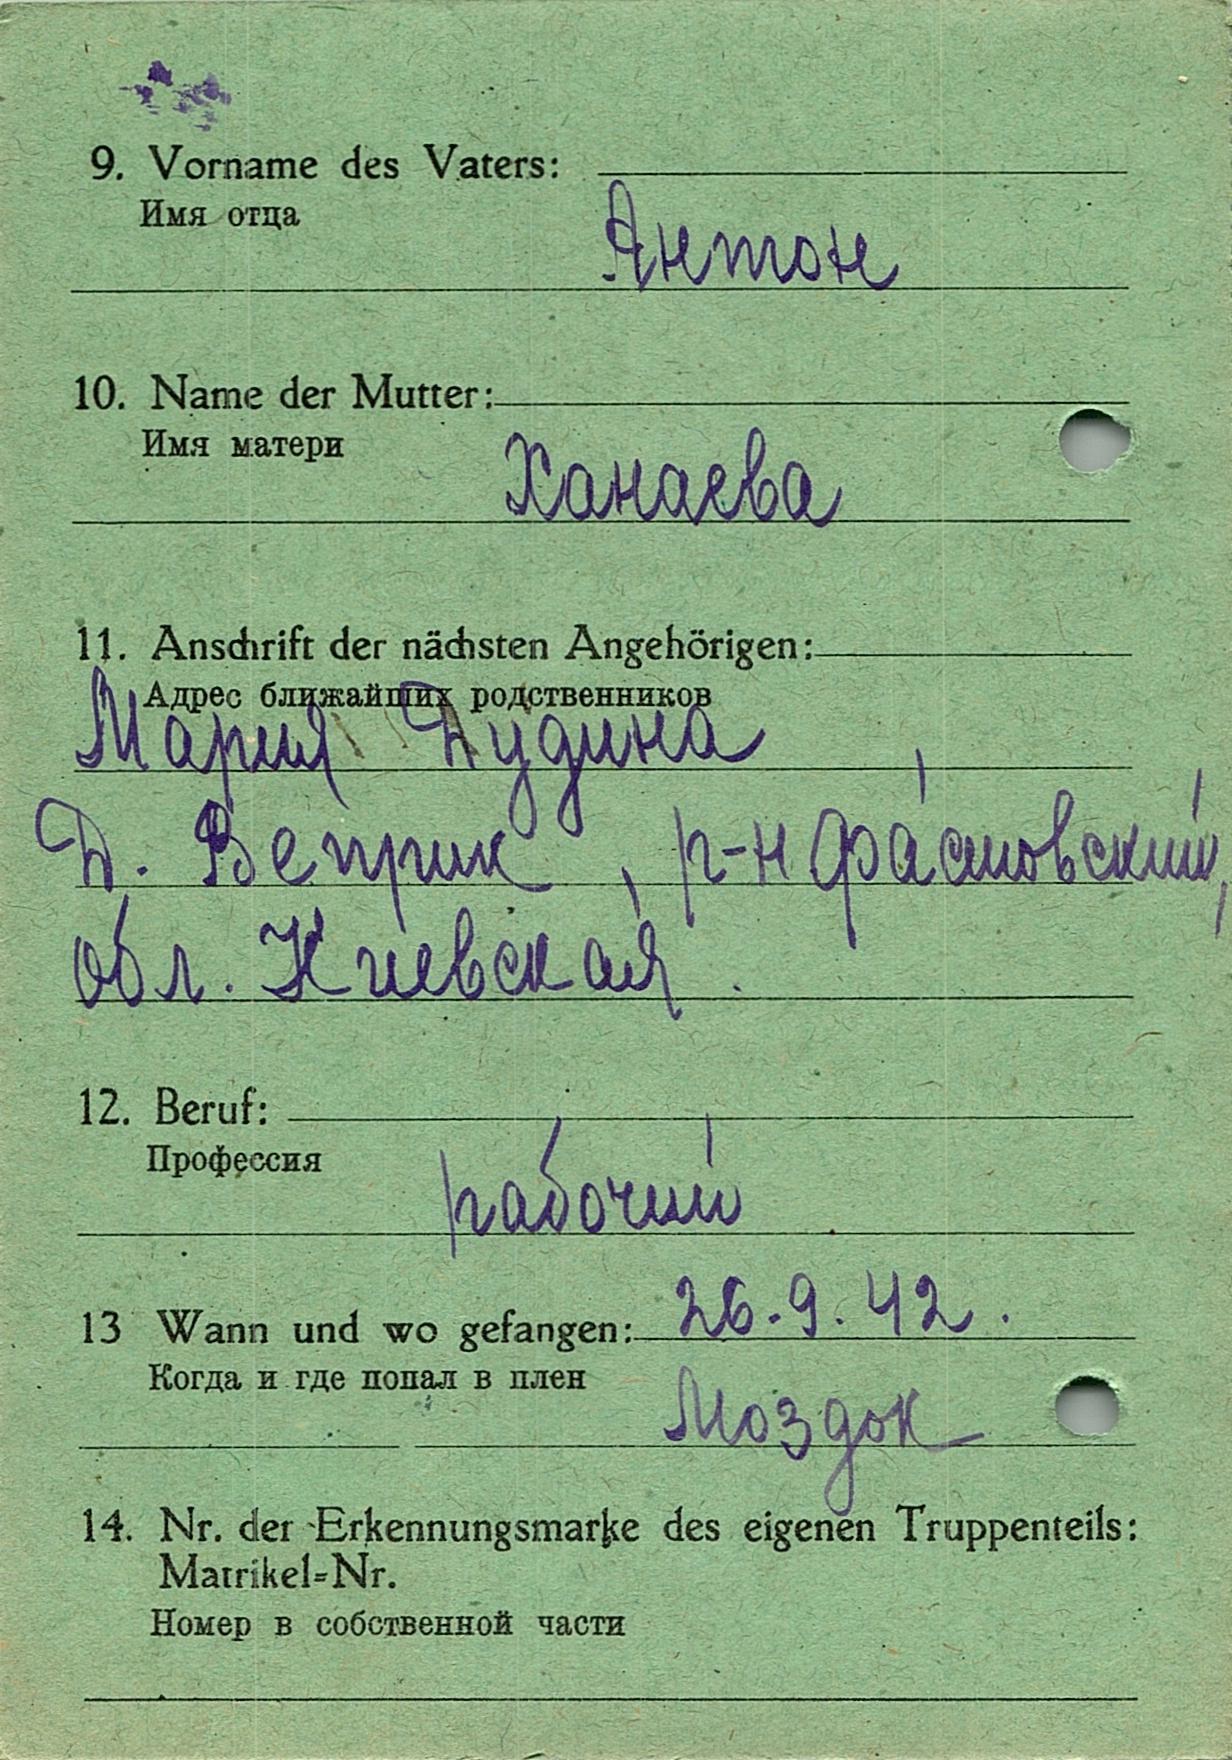 9. Vorname des Vaters:
Имя отца
Антон
10. Name der Mutter:
Имя матери
Ханаева
11. Anschrift der nächsten Angehörigen:
Адрес ближайших родственников
Мария Дудина
Д. Веприк, р-н Фастовский,
обл. Киевская.
12. Beruf:
Профессия
рабочий
13 Wann und wo gefangen: 26.9.42.
Когда и где попал в плен
Моздок
14. Nr. der Erkennungsmarke des eigenen Truppenteils:
Matrikel-Nr.
Номер в собственной части